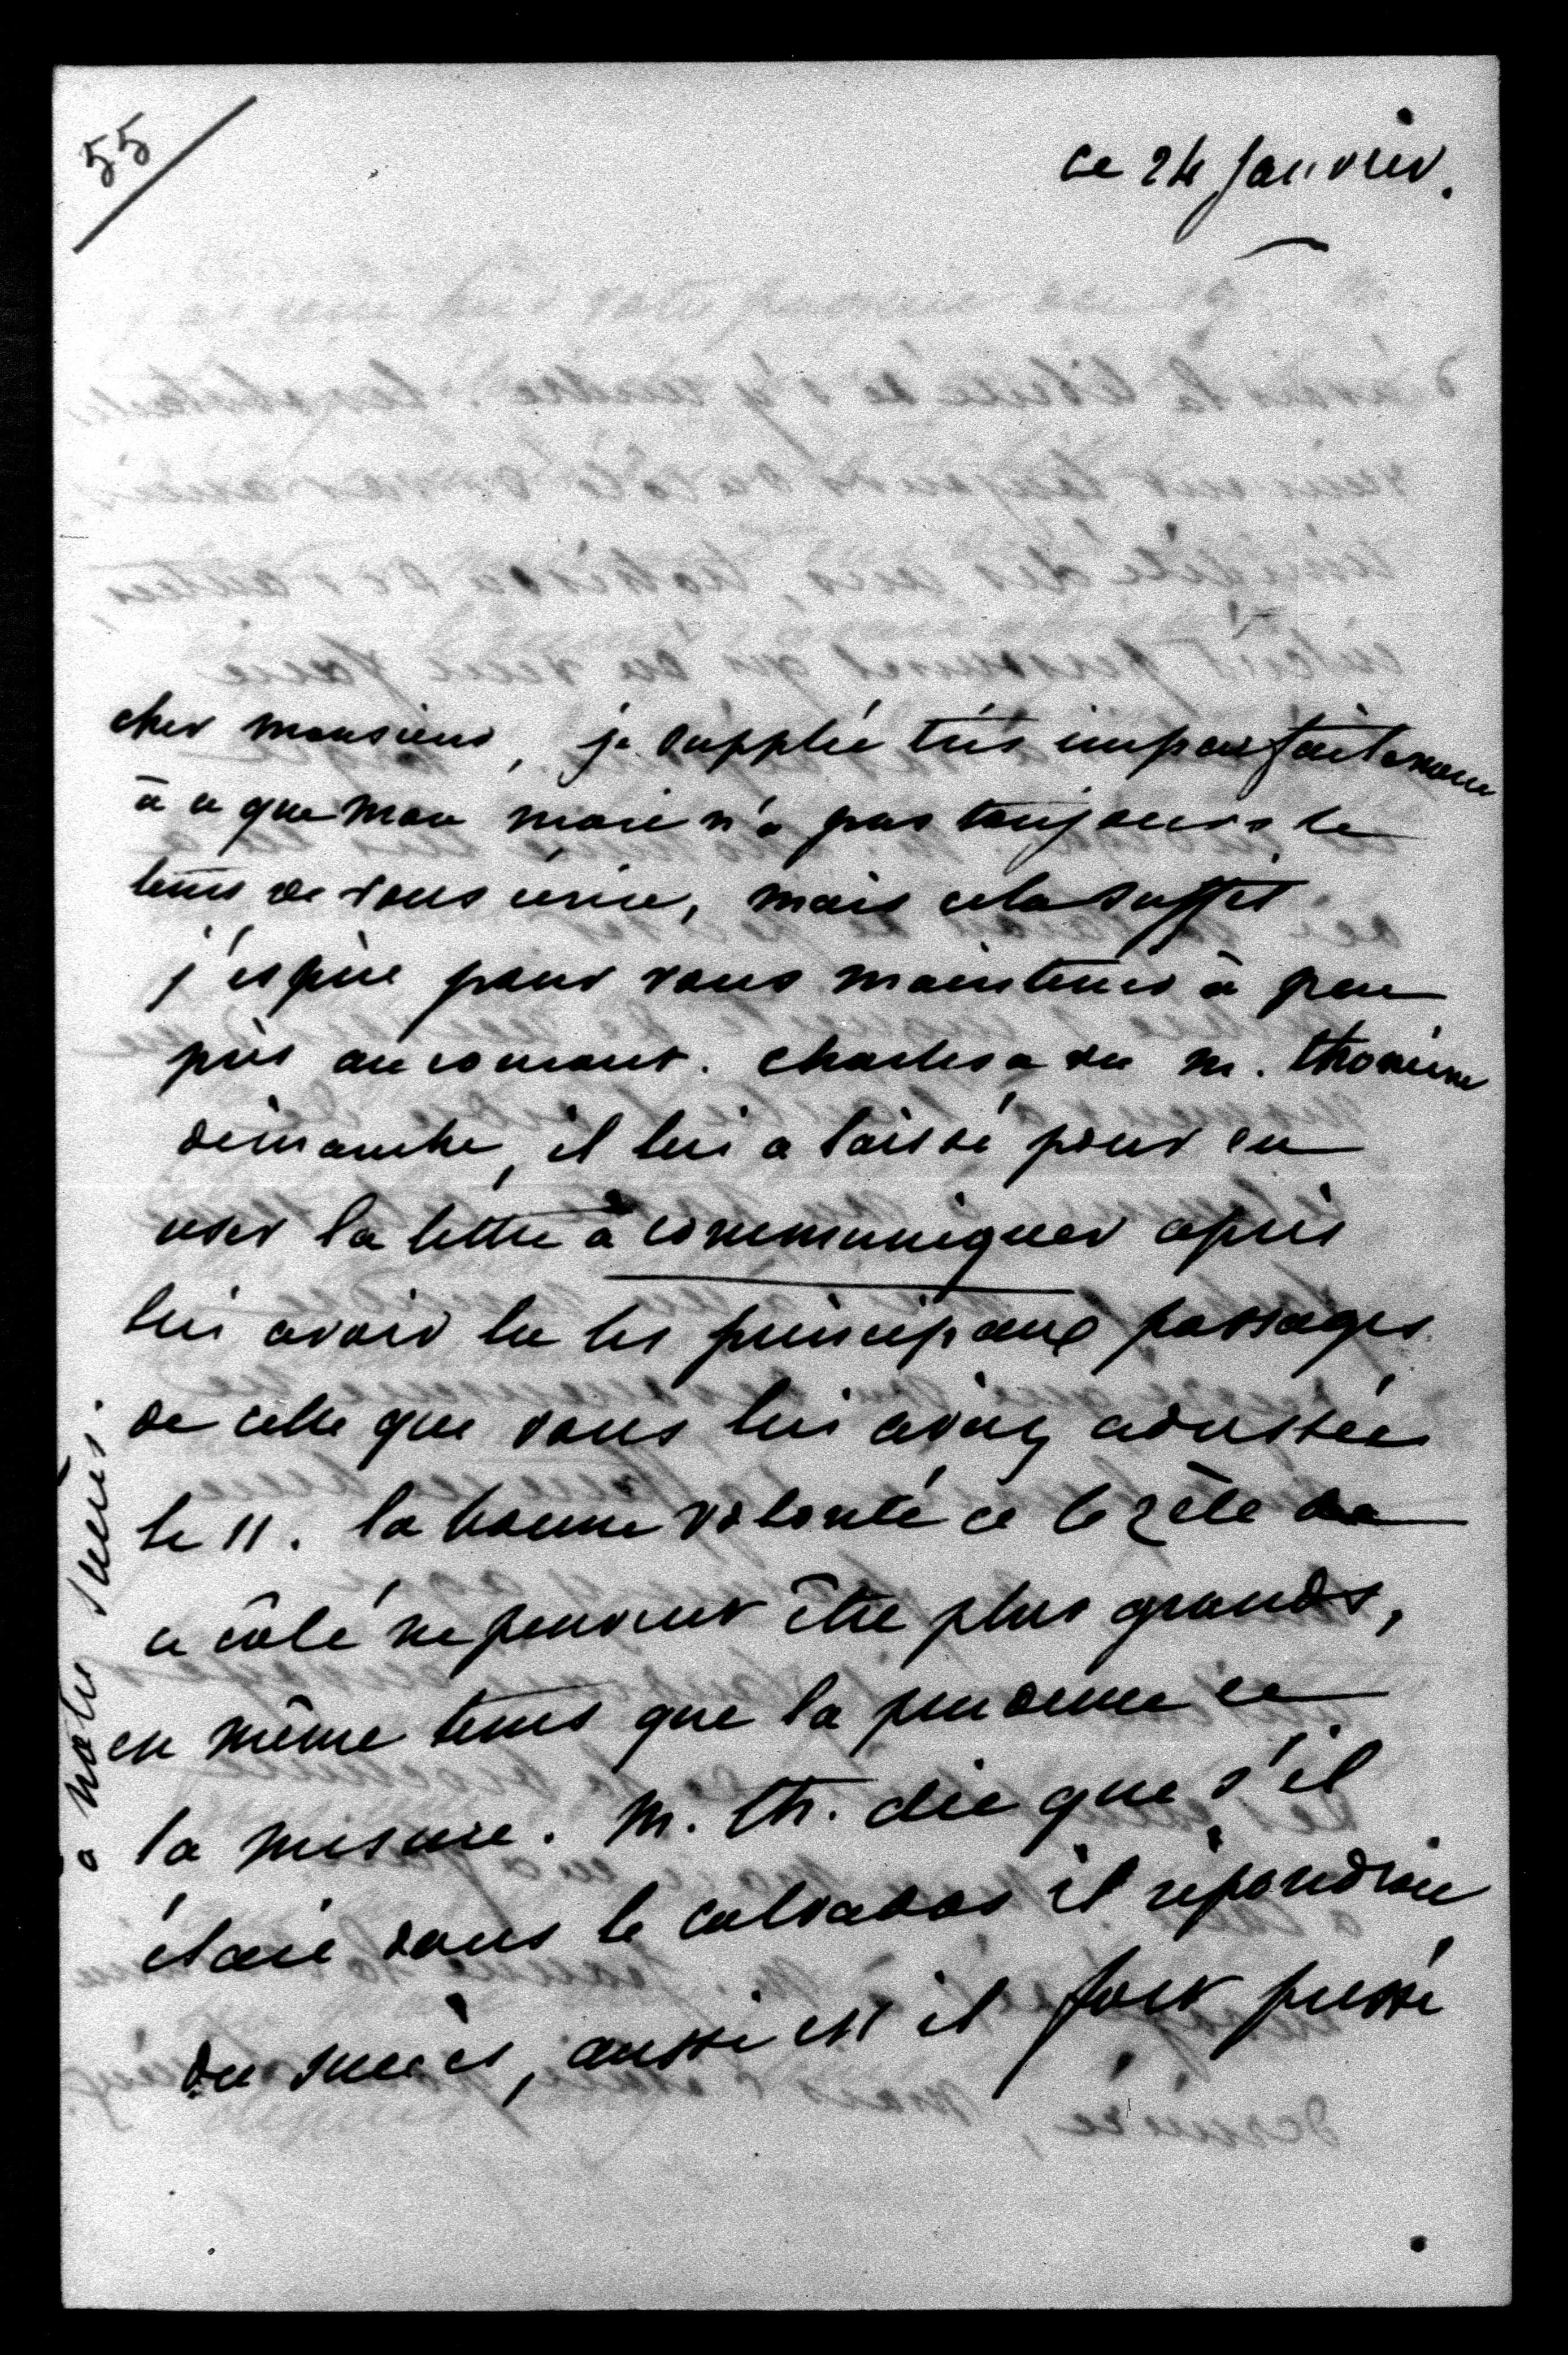 55
ce 24 janvier.
cher monsieur, je supplée très imparfaitement
à ce que mon mari n'a pas toujours le
tems de vous écrire, mais cela suffit
j'espère pour vous maintenir à peu
près au courant. Charles a vu m. thomine
dimanche, il lui a laissé pour en
user la lettre à communiquer après
lui avoir lu les principaux passages
de celle que vous lui aviez adressée
le 11. la bonne volonté et le zèle de
ce côté ne peuvent être plus grands,
en même tems que la prudence et
la mesure. M. th. dit que s'il
était dans le calvados il répondrait
du succès, aussi est il fort pressé
à notre